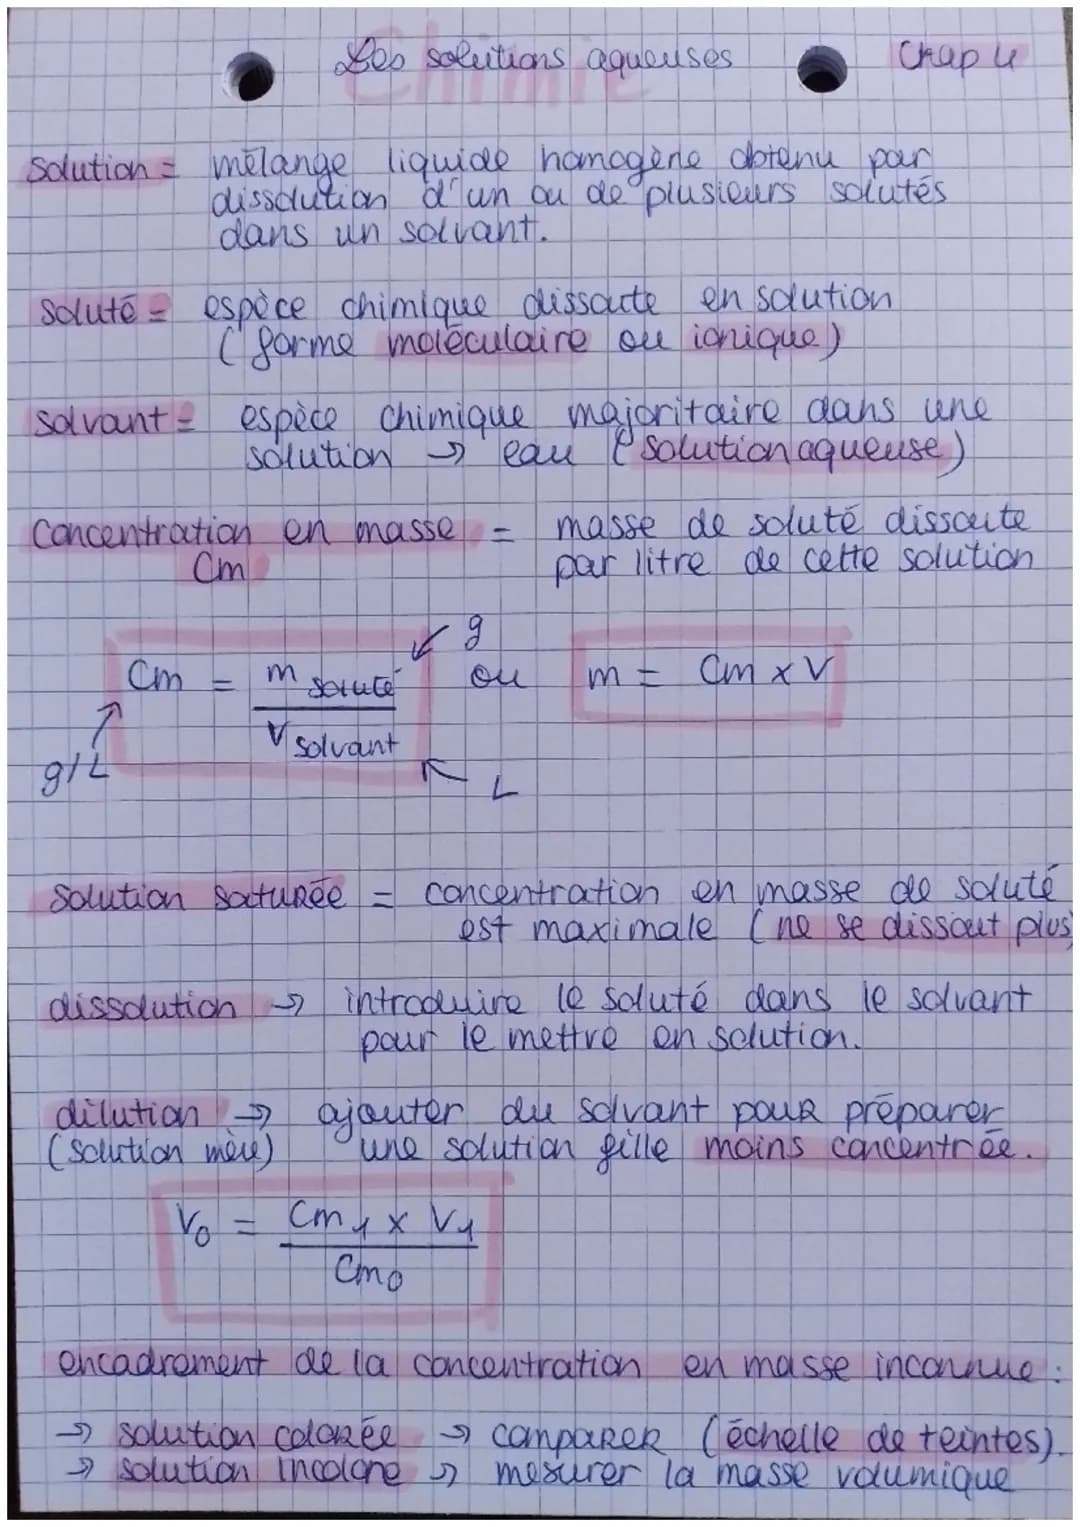 Chimie
Les solutions aqueuses Chap 4
solution = mélange liquide homogène obtenu par
dissolution d'un ou de plusieurs solutés
dans un solvant.
soluté = espèce chimique dissoute en solution
(forme moléculaire ou ionique)
solvant = espèce chimique majoritaire dans une
solution → eau (solution aqueuse)
Concentration en masse = masse de soluté dissoute
Cm par litre de cette solution
g
Cm = m soluté ou m = Cm x V
V solvant
g/L L
solution saturée = concentration en masse de soluté
est maximale (ne se dissout plus)
dissolution → introduire le soluté dans le solvant
pour le mettre en solution.
dilution → ajouter du solvant pour préparer
(solution mère) une solution fille moins concentrée.
V0 = Cm1 x V1
Cm0
encadrement de la concentration en masse inconnue :
→ solution colorée → comparer (échelle de teintes).
→ solution incolore → mesurer la masse volumique